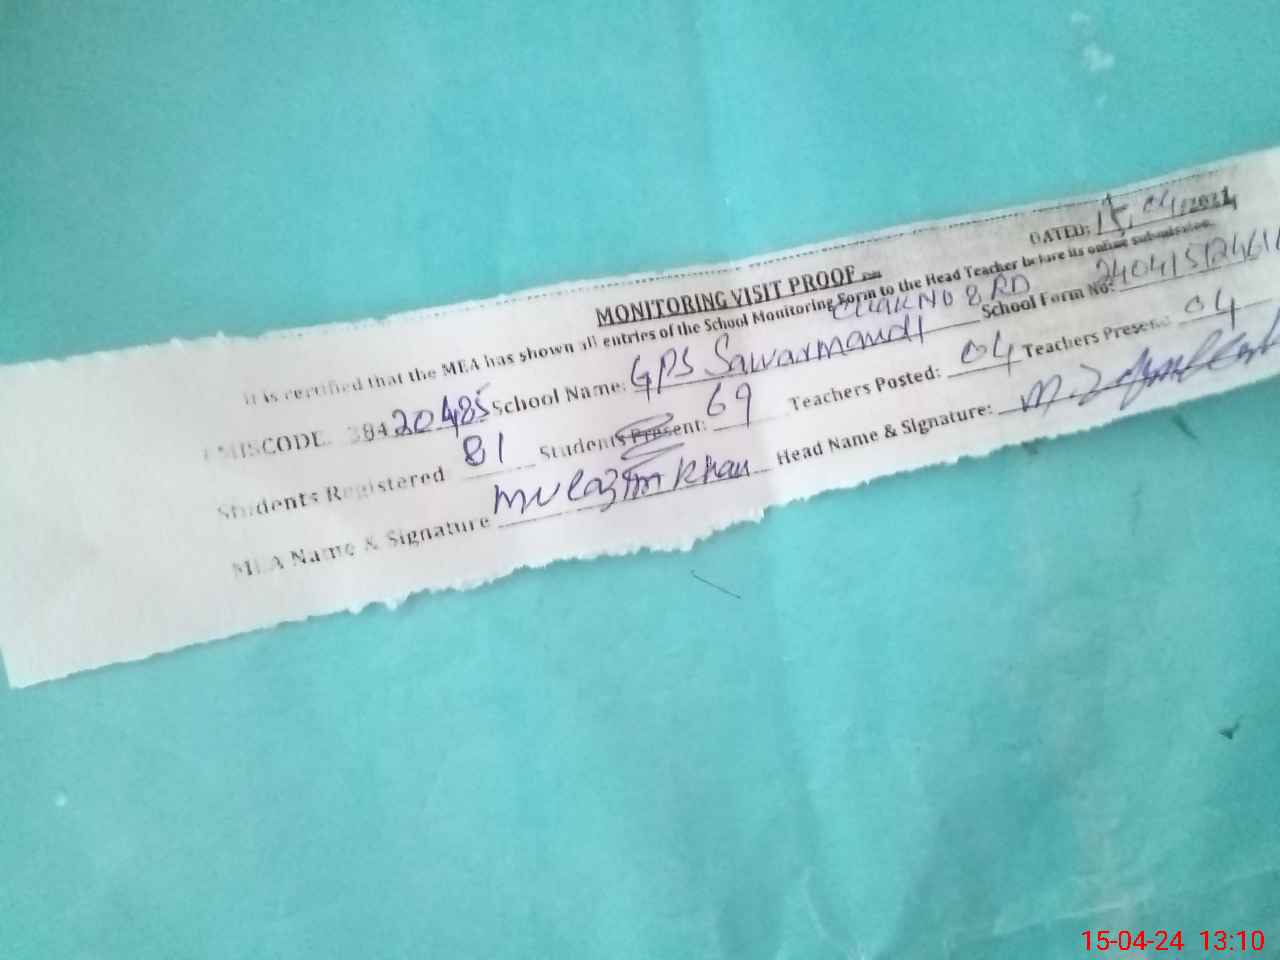 DATED: 15,04,2024
MONITORING VISIT PROOF
It is certified that the MEA has shown all entries of the School Monitoring Form to the Head Teacher before its online submission.
CHAK NO 8 RD
EMISCODE. 38420485 School Name: GPS Sawarmandi School Form No:
Students Registered 81 Students Present: 69 Teachers Posted: 04 Teachers Present: 04
MEA Name & Signature Mulazim Khan Head Name & Signature:
15-04-24 13:10